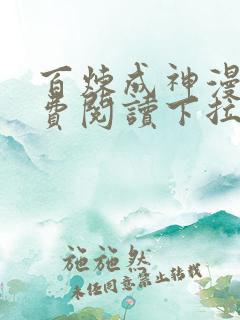 百炼成神漫
费阅读下拉
施施然
未经同意禁止转载